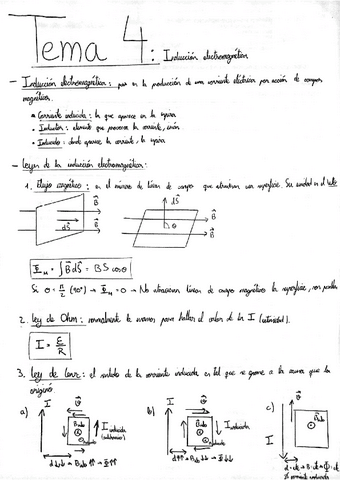 Tema 4: Inducción electromagnética
- Inducción electromagnética: que es la producción de una corriente eléctrica por acción de campos
magnéticos.
• Corriente inducida: la que aparece en la espira
• Inductor: elemento que provoca la corriente, imán
• Inducido: donde aparece la corriente, la espira
- Leyes de la inducción electromagnética:
1. Flujo magnético: es el número de líneas de campo que atraviesan una superficie. Su unidad es el
B
dS
B
dS
B
θ
B
Φm = ∫ B dS = B S cos θ
Si θ = π/2 (90°) → Φm = 0 → No atraviesan líneas de campo magnético la superficie, son
2. Ley de Ohm: normalmente la usamos para hallar el valor de la I (intensidad).
I = ε/R
3. Ley de Lenz: el sentido de la corriente inducida es tal que se opone a la causa que la
originó
a) I
I inducida
b) I
I inducida
c)
I
d↓↓ → B↑↑ → Φ↑↑
d↑↑ → B↓↓ → Φ↓↓